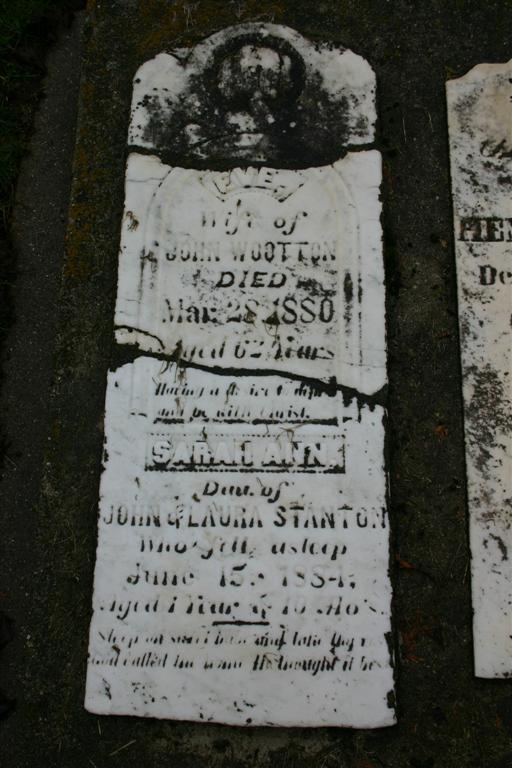 EVE.
Wife of
JOHN WOOTTON
DIED
Mar. 28, 1880
Aged 62 Years
Having a desire to depart
and be with Christ.
SARAH ANN.
Dau. of
JOHN & LAURA STANTON
Who fell asleep
June 15, 1884,
Aged 1 Year & 10 Mos.
Sleep on sweet babe and take thy rest
and called thee home He thought it best
MEN
De